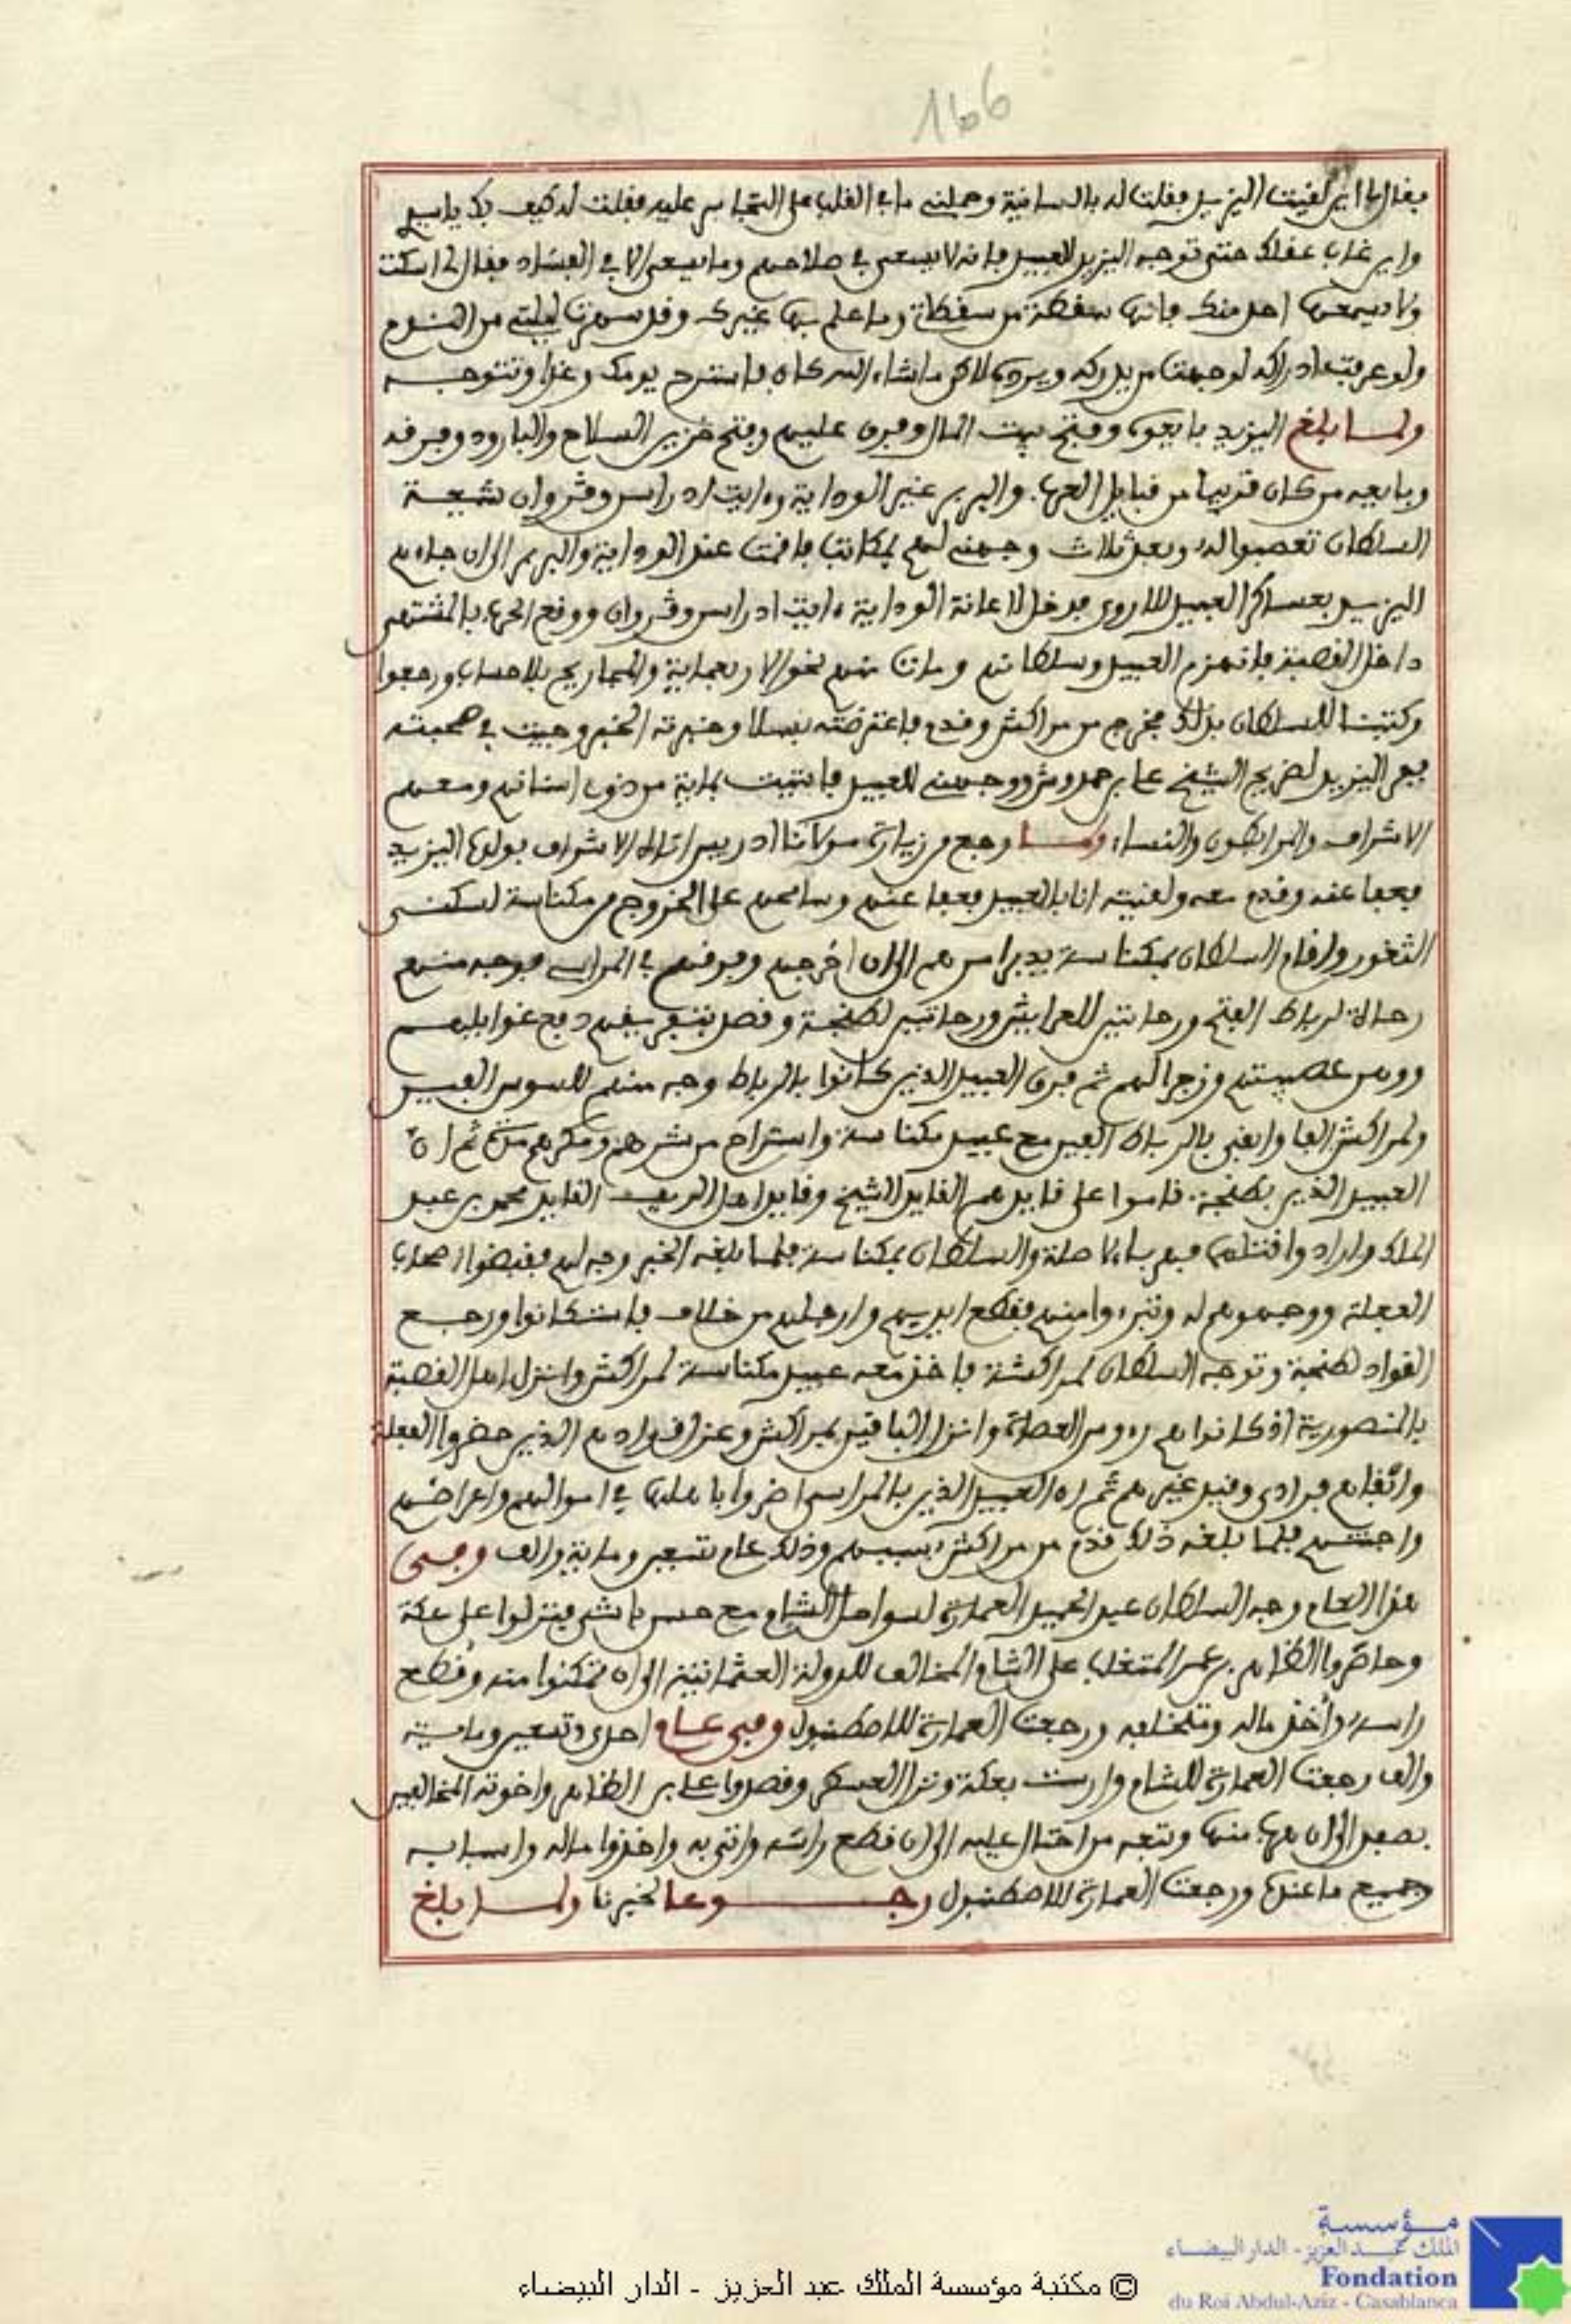 166
فقال لي اين لقيت اليزيد فقلت له بالسانية وحملني ما في القلب على التجاسر عليه فقلت له كيف بك يا سيدي
واين غاب عقلك حتى توجه اليزيد للعبيد فانه لا يسعى في صلاحهم وما يسعى الا في الفساد فقال لي اسكت
ولا يسمعها احد منك فانها سقطة من سقطاتي وما علم بها غيرك وقد سهرت ليلتي من
ولو عرفت ادراكه لوجهت من يدركه ويرده لاكن ما شاء الله كان فاسترح يومك وغدا وتتوجه
ولما بلغ اليزيد بايعوه وفتح بيت المال وفرق عليهم وفتح خزين السلاح والبارود وفرقه
وبايعه من كان قريبا من قبايل العرب والبربر غير الوداية وايت ادراسن وجروان شيعة
السلطان تعصبوا له وبعد ثلاث وجهني لهم بمكاتب فاقمت عند الوداية والبربر الى ان جاءهم
اليزيد بعساكر العبيد للاروى فدخل لاعانة الوداية ايت ادراسن وجروان ووقع الحرب بالمشتهى
داخل القصبة فانهزم العبيد وسلطانهم ومات منهم نحو الاربعماية والمجاريح بلا حساب ورجعوا
وكتبت للسلطان بذلك فخرج من مراكش وقدم فاعترضته بسلا وخبرته الخبر وجيت في صحبته
ففر اليزيد لضريح الشيخ علي بن حمدوش ووجهني للعبيد فاتيت بماية من ذوي اسنانهم ومعهم
الاشراف والمرابطون والنساء ولما رجع من زيارة مولانا ادريس اتاه الاشراف بولده اليزيد
فعفا عنه وقدم معه ولقيته انا بالعبيد فعفا عنهم وسامحهم على الخروج من مكناسة لسكنى
الثغور واقام السلطان بمكناسة يدبر امرهم الى ان اخرجهم وفرقهم في المراسي فوجه منهم
رحا لرباط الفتح ورحاتين للعرايش ورحاتين لطنجة وقصد بتفريقهم دفع غوايلهم
ووهن عصبيتهم وزجرا لهم ثم فرق العبيد الذين كانوا بالرباط وجه منهم للسوس الفين
ولمراكش الفا وابقى بالرباط الفين مع عبيد مكناسة واستراح من شرهم ومكرهم مدة ثم ان
العبيد الذين بطنجة قاموا على قايدهم القايد الشيخ وقايد اهل الريف القايد محمد بن عبد
الملك وارادوا قتلهم ففر باءلا صلة والسلطان بمكناسة فلما بلغه الخبر وجه لهم فقبضوا اصحاب
الفعلة ووجهوهم له وتبرءوا منهم فقطع ايديهم وارجلهم من خلاف فاستكانوا ورجع
القواد لطنجة وتوجه السلطان لمراكشة فاخذ معه عبيد مكناسة لمراكش وانزل اهل القصبة
بالمنصورية اذ كانوا هم رءوس العصاة وانزل الباقين بمراكش وعزل قوادهم الذين حضروا الفعلة
وابقاهم فرادى وقيد غيرهم ثم ان العبيد الذين بالمراسي اضروا باهلها في اموالهم واعراضهم
واجنتهم فلما بلغه ذلك قدم من مراكش بسببهم وذلك عام تسعين وماية والف وفي
هذا العام وجه السلطان عبد الحميد العمارة لسواحل الشام مع حسن باشى فنزلوا على عكة
وحاصروا الظاهر بن عمر المتغلب على الشام المخالف للدولة العثمانية الى ان تمكنوا منه وقطع
راسه واخذ ماله ومتخلفه ورجعت العمارة للاصطنبول وفي عام احدى وتسعين وماية
والف رجعت العمارة للشام وارست بعكة ونزل العسكر وقصدوا علي بن الظاهر واخوته المخالفين
بصفد الى ان هرب منها وتبعه من احتال عليه الى ان قطع راسه واتى به واخذوا ماله واسبابه
وجميع ما عنده ورجعت العمارة للاصطنبول رجوعا لخبرنا ولما بلغ
مؤسسة
الملك عبد العزيز - الدار البيضاء
Fondation
du Roi Abdul-Aziz - Casablanca
© مكتبة مؤسسة الملك عبد العزيز - الدار البيضاء